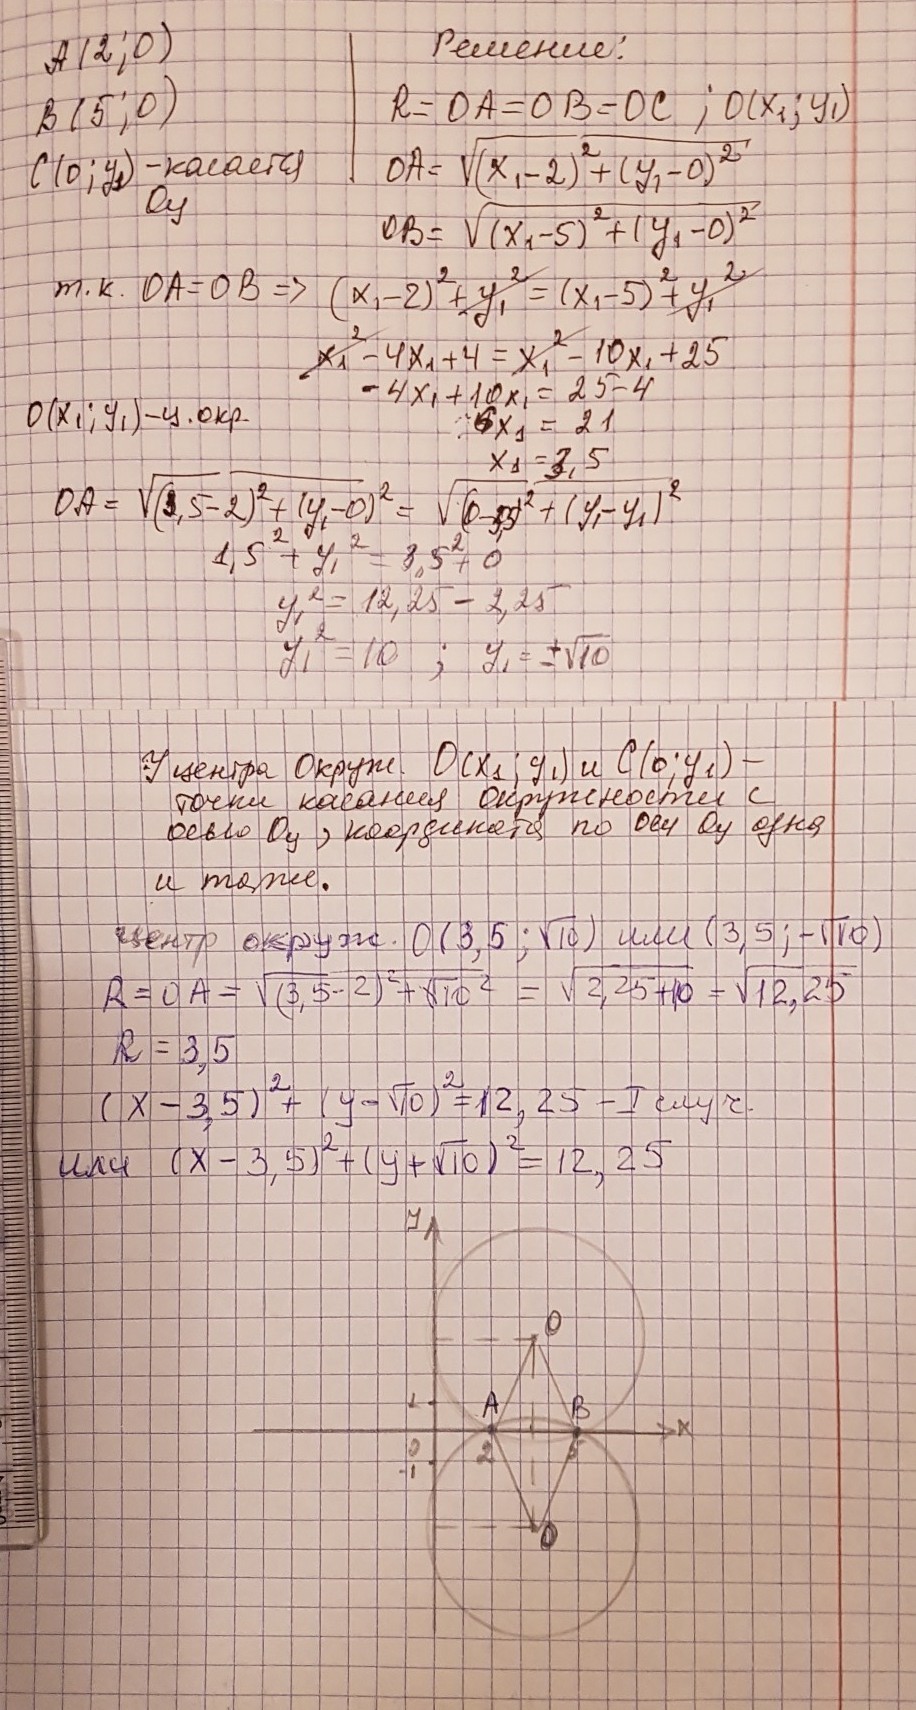 A(2;0)
B(5;0)
C(0;y₁) - касается
Oy
Решение:
R = OA = OB = OC ; O(x₁; y₁)
OA = √((x₁-2)² + (y₁-0)²)
OB = √((x₁-5)² + (y₁-0)²)
т.к. OA = OB => (x₁-2)² + y₁² = (x₁-5)² + y₁²
x₁² - 4x₁ + 4 = x₁² - 10x₁ + 25
-4x₁ + 10x₁ = 25-4
O(x₁; y₁) - ц. окр.
6x₁ = 21
x₁ = 3,5
OA = √((3,5-2)² + (y₁-0)²) = √((0-3,5)² + (y₁-y₁)²)
1,5² + y₁² = 3,5² + 0
y₁² = 12,25 - 2,25
y₁² = 10 ; y₁ = ±√10
У центра Окруж. O(x₁; y₁) и C(0; y₁) -
точки касания окружности с
осью Oy, координата по оси Oy одна
и таже.
Центр окруж. O(3,5; √10) или (3,5; -√10)
R = OA = √((3,5-2)² + √10²) = √(2,25+10) = √12,25
R = 3,5
(x - 3,5)² + (y - √10)² = 12,25 - I случ.
или (x - 3,5)² + (y + √10)² = 12,25
y
O
1
A
B
x
0
2
5
-1
O